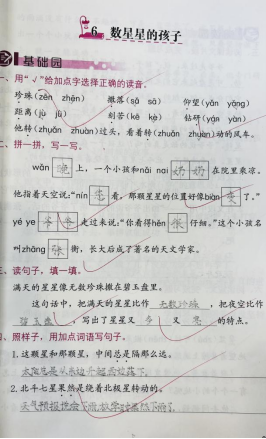 6. 数星星的孩子
基础园
一、用“√”给加点字选择正确的读音。
珍珠(zēn zhēn) 撒落(sǎ sà) 仰望(yǎn yǎng)
距离(jù jǜ) 刻苦(kē kè) 钻研(yán yàn)
他转(zhuǎn zhuàn)过头,看着转(zhuǎn zhuàn)动的风车。
二、拼一拼,写一写。
wǎn 晚 上,一个小孩和nǎi nai 奶奶 在院里乘凉。
他指着天空说:“nín 您 看,那颗星星的位置好像biàn 变 了。”
yé ye 爷爷 走过来说:“你看得hěn 很 仔细。”这个小孩名
叫zhāng 张 衡,长大后成了著名的天文学家。
三、读句子,填一填。
满天的星星像无数珍珠撒在碧玉盘里。
这句话中,把满天的星星比作 无数珍珠 ,把夜空比作
碧玉盘 ,写出了星星又 多 又 亮 的特点。
四、照样子,用加点词语写句子。
1. 这颗星和那颗星,中间总是隔那么远。
太阳总是从东边升起西边落下。
2. 北斗七星果然是绕着北极星转动的。
天气预报说会下雨,放学时果然下雨了。